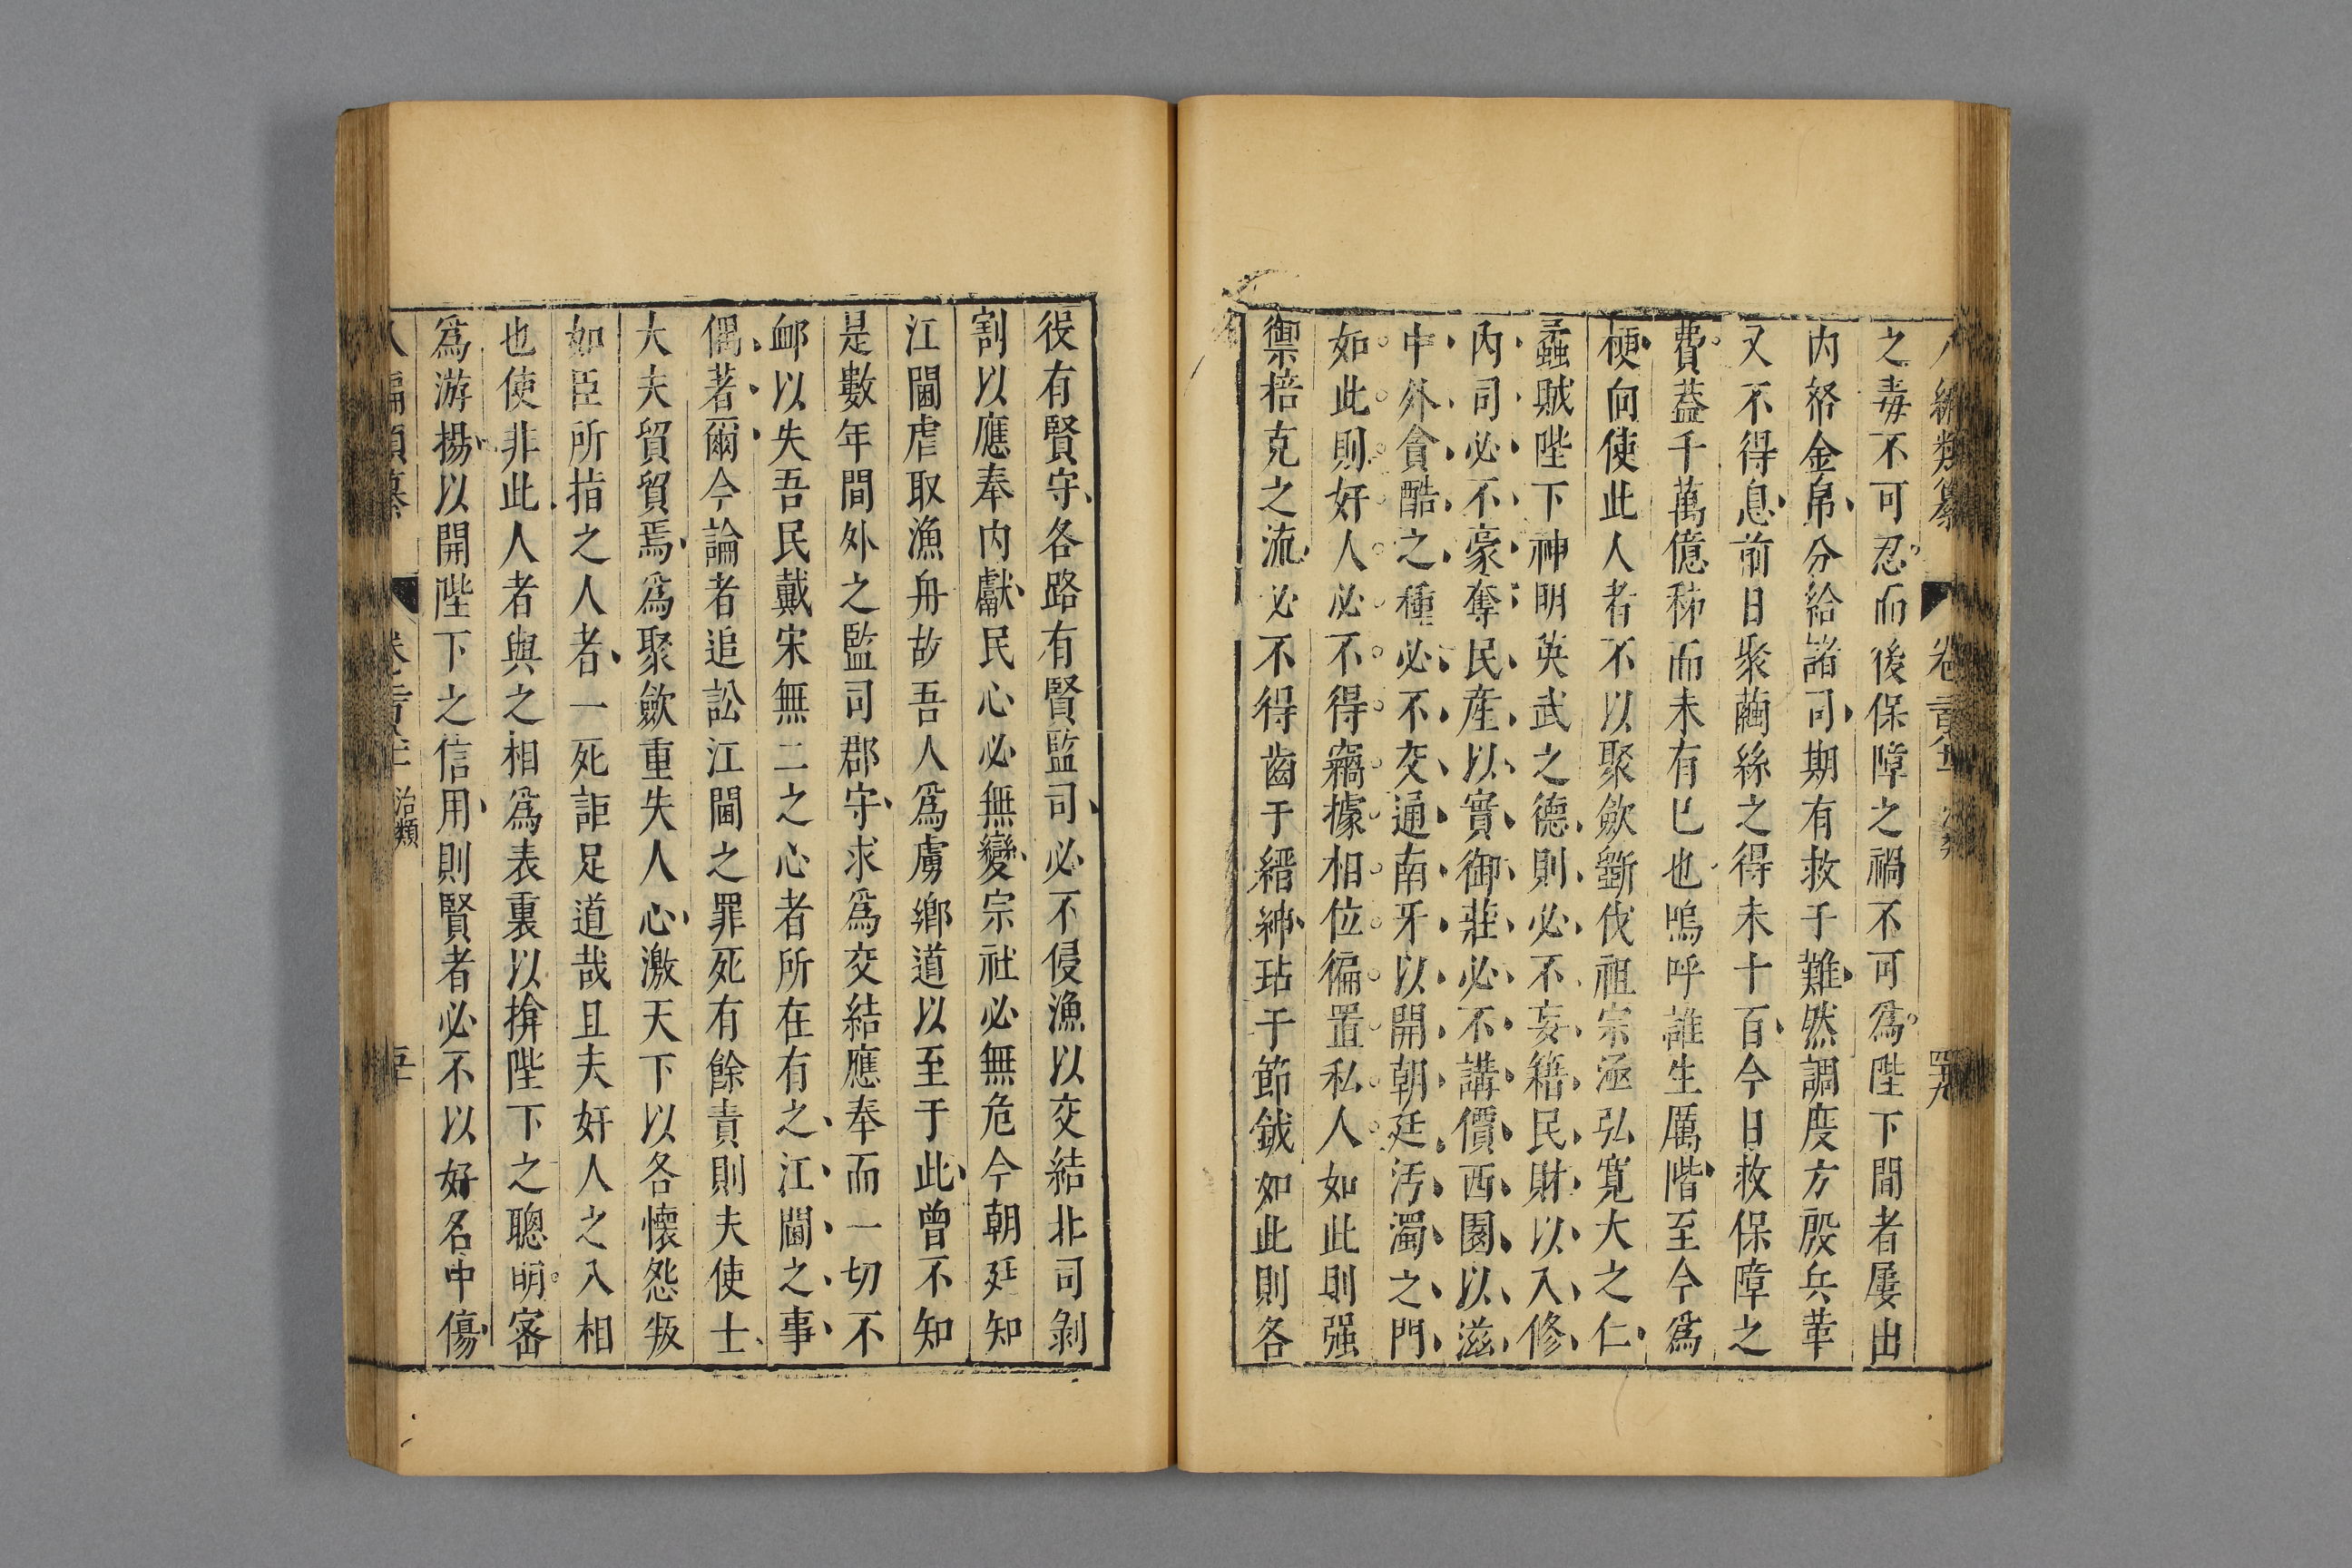 八編類纂 卷 治類 四九
之毒不可忍而後保障之禍不可爲陛下間者屢出
内帑金帛分給諸司期有救于難然調度方殷兵革
又不得息前日聚繭絲之得未十百今日救保障之
費葢千萬億秭而未有已也嗚呼誰生厲階至今爲
梗向使此人者不以聚歛斲伐祖宗涵弘寬大之仁
蟊賊陛下神明英武之德則必不妄籍民財以入修
内司必不豪奪民産以實御莊必不講價西園以滋
中外貪酷之種必不交通南牙以開朝廷汚濁之門
如此則奸人必不得竊據相位徧置私人如此則强
禦掊克之流必不得齒于縉紳玷于節鉞如此則各
郡有賢守各路有賢監司必不侵漁以交結北司剝
割以應奉内獻民心必無變宗社必無危今朝廷知
江閫虐取漁舟故吾人爲虜鄉道以至于此曾不知
是數年間外之監司郡守求爲交結應奉而一切不
䘏以失吾民戴宋無二之心者所在有之江閫之事
偶著爾今論者追訟江閫之罪死有餘責則夫使士
大夫貿貿焉爲聚歛重失人心激天下以各懷怨叛
如臣所指之人者一死詎足道哉且夫奸人之入相
也使非此人者與之相爲表裏以揜陛下之聰明密
爲游揚以開陛下之信用則賢者必不以好名中傷
八編類纂 卷 治類 五十